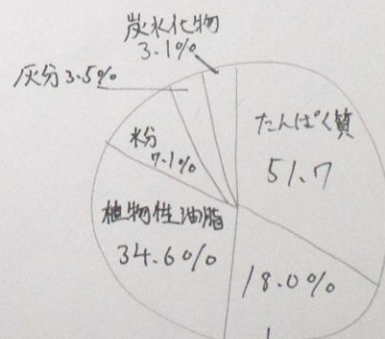 炭水化物
3.1%
灰分3.5%
水分
7.1%
たんぱく質
51.7
植物性油脂
34.60%
18.0%